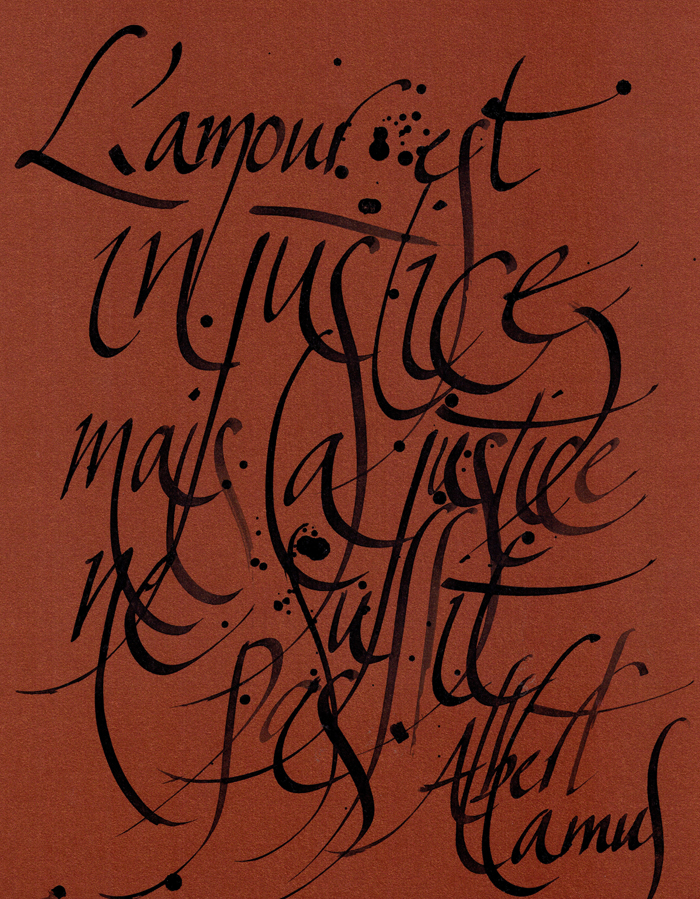 L'amour est
injustice
mais la justice
ne suffit
pas.
Albert
Camus